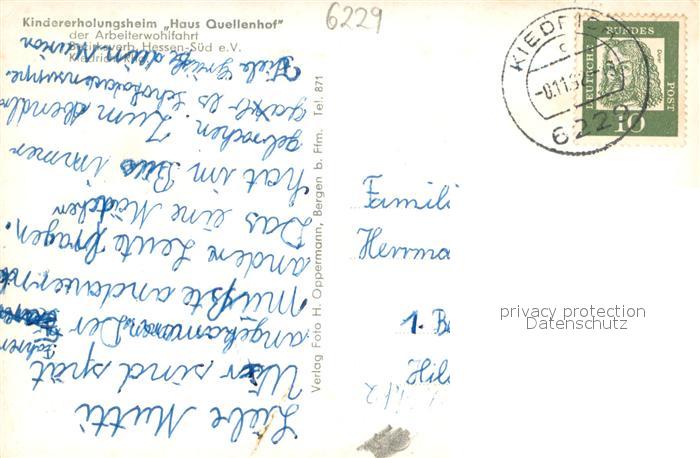 Kindererholungsheim „Haus Quellenhof"
der Arbeiterwohlfahrt
Bezirksverb. Hessen-Süd e.V.
Kiedrich
6229
KIEDRICH
6229
DEUTSCHE
BUNDES
POST
Dürer
10
Liebe Mutti
Wir sind spät
angekommen. Der Fahrer
mußte andauernd
andere Leute fragen.
Das eine Mädchen
hat im Bus immer
gebrochen. Zum Abendbrot
gab es Schokoladensuppe.
Viele Grüße dein
Verlag Foto H. Oppermann, Bergen b. Ffm. Tel. 871
Famili
Herrma
1. B
Hil
privacy protection
Datenschutz